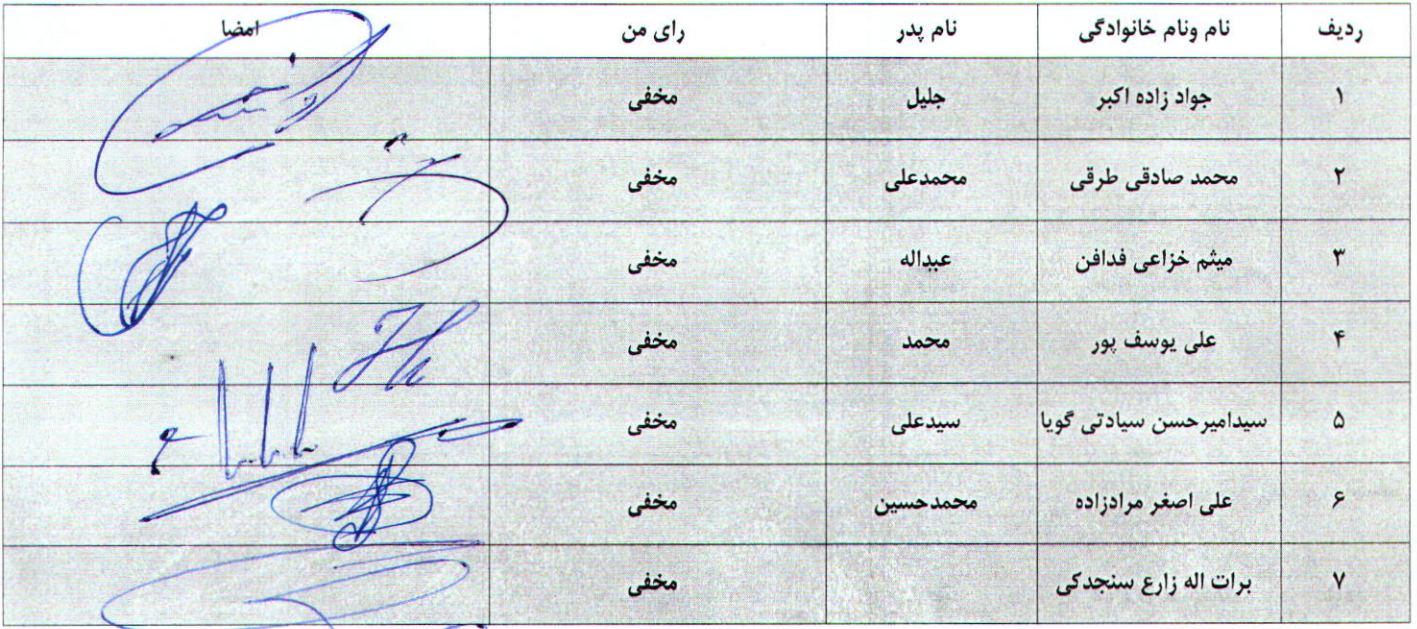 ردیف نام ونام خانوادگی نام پدر رای من امضا
۱ جواد زاده اکبر جلیل مخفی
۲ محمد صادقی طرقی محمدعلی مخفی
۳ میثم خزاعی فدافن عبداله مخفی
۴ علی یوسف پور محمد مخفی
۵ سیدامیرحسن سیادتی گویا سیدعلی مخفی
۶ علی اصغر مرادزاده محمدحسین مخفی
۷ برات اله زارع سنجدکی مخفی